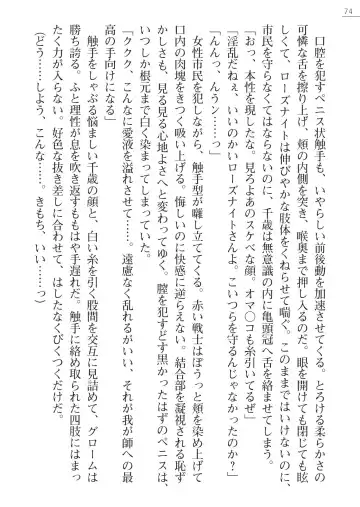 74
口腔を犯すペニス状触手も、いやらしい前後動を加速させてくる。とろける柔らかさの
可憐な舌を擦り上げ、頬の内側を突き、喉奥まで押し入るのだ。眼を開けても閉じても眩
しくて、ローズナイトは伸びやかな肢体をくねらせて喘ぐ。このままではいけないのに、
市民を守らなくてはならないのに、千歳は無意識の内に亀頭冠へ舌を絡ませてしまう。
「おっ、本性を現したな。見ろよあのスケベな顔。オマ〇コも糸引いてるぜ」
「淫乱だねぇ、いいのかいローズナイトさんよ。こいつらを守るんじゃなかったのか?」
「んんっ、んうンン……っ」
女性市民を犯しながら、触手型が囃し立ててくる。赤い戦士はぽうっと頬を染め上げて
口内の肉塊をきつく吸い上げた。悔しいのに快感に逆らえない。結合部を凝視される恥ず
かしさも、見る見る心地よさへと変わってゆく。膣を犯すどす黒かったはずのペニスは、
いつしか根元まで白く染まってしまっていた。
「ククク、こんなに愛液を溢れさせて……。遠慮なく乱れるがいい、それが我が師への最
高の手向けになる」
触手をしゃぶる悩ましい千歳の顔と、白い糸を引く股間を交互に見詰めて、グロームは
勝ち誇る。ふと理性が息を吹き返すももはや手遅れだ。触手に絡め取られた四肢にはまっ
たく力が入らない。好色な抜き差しに合わせて、はしたなくびくつくだけだ。
(どう……しよう、こんな……。きもち、いい……っ)